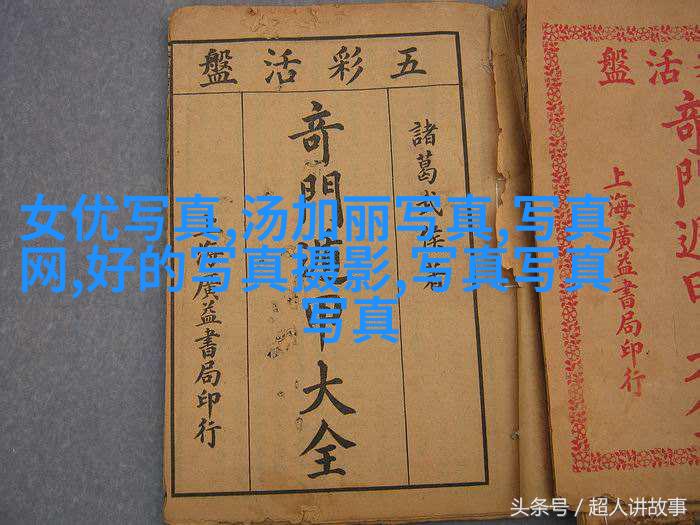 五彩活盤
諸葛武侯著
奇門遁甲大全
海廣益書局印行
活盤
奇門遁甲
上海廣益書局印行
女优写真,汤加丽写真,写真
网,好的写真摄影,写真写真
写真
头条号 / 超人讲故事